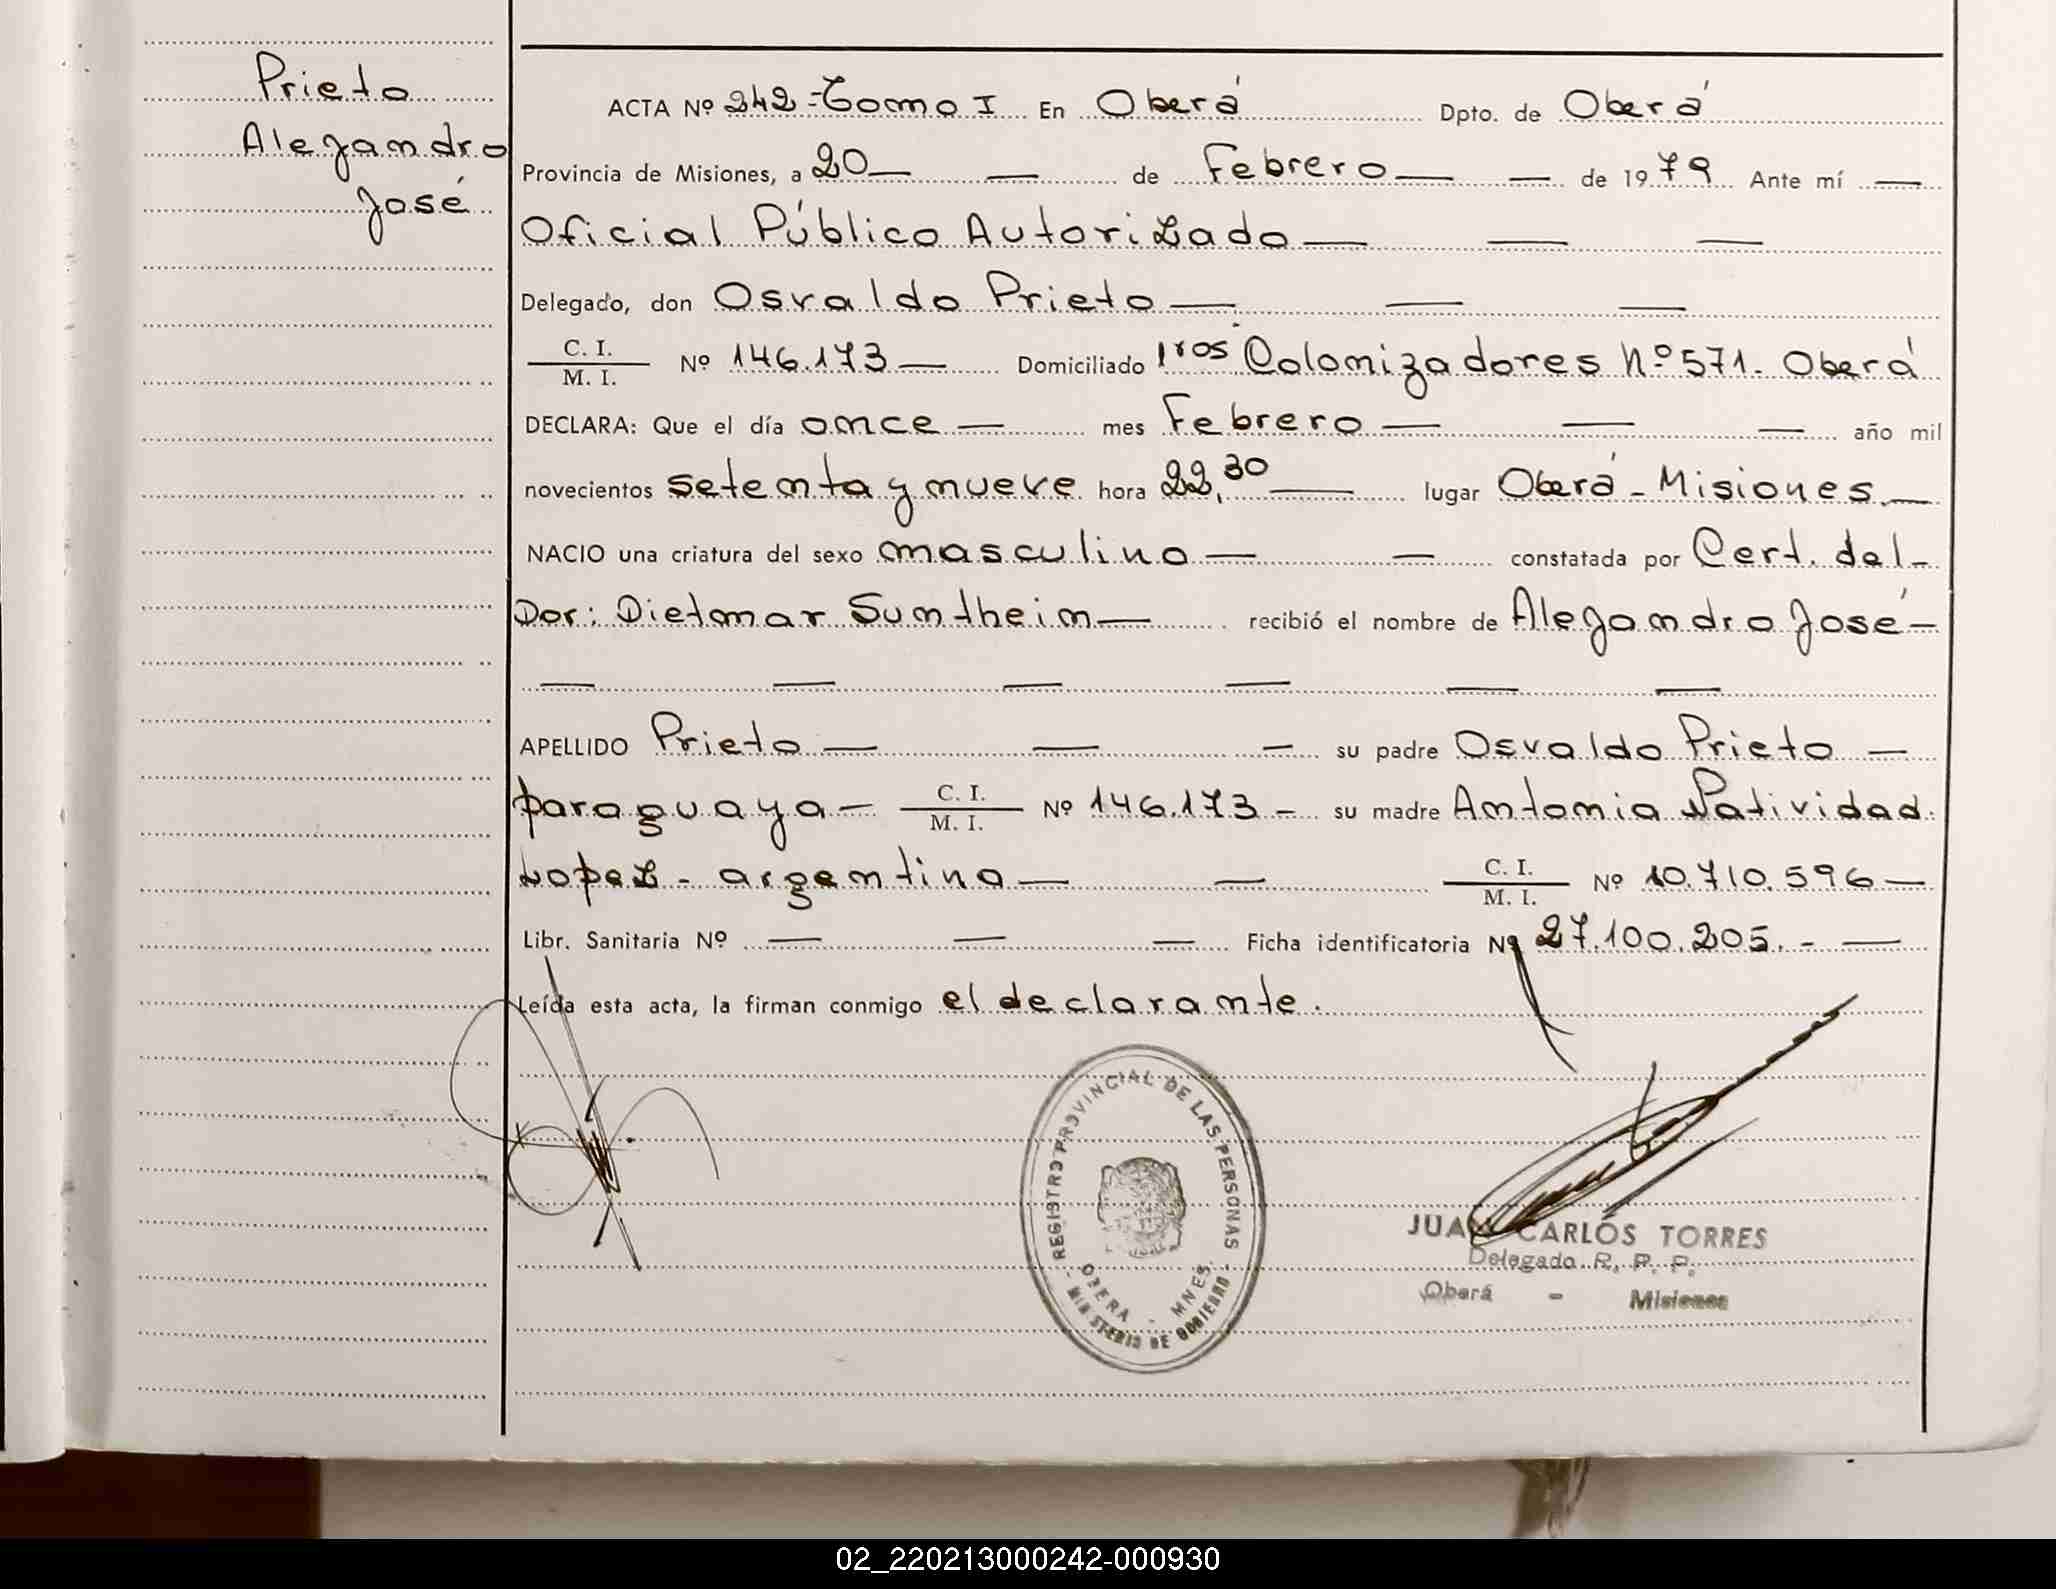 Prieto
Alejandro
José
ACTA Nº 242-Tomo I En Oberá Dpto. de Oberá
Provincia de Misiones, a 20 — — de Febrero — — de 1979 Ante mí —
Oficial Público Autorizado — — —
Delegado, don Osvaldo Prieto — — —
C. I.
M. I. Nº 146.173 — Domiciliado 1ros Colonizadores Nº 571. Oberá
DECLARA: Que el día once — mes Febrero — — — año mil
novecientos setenta y nueve hora 22,30 — lugar Oberá - Misiones. —
NACIO una criatura del sexo masculino — — constatada por Cert. del -
Dor: Dietmar Suntheim — recibió el nombre de Alejandro José -
— — — — — —
APELLIDO Prieto — — — su padre Osvaldo Prieto —
paraguaya — C. I. / M. I. Nº 146.173 - su madre Antonia Natividad
Lopez - argentina — — C. I. / M. I. Nº 10.710.596 —
Libr. Sanitaria Nº — — — Ficha identificatoria Nº 27.100.205. - —
Leída esta acta, la firman conmigo el declarante.
REGISTRO PROVINCIAL DE LAS PERSONAS
OBERA - MNES.
- MINISTERIO DE GOBIERNO -
JUAN CARLOS TORRES
Delegado R. P. P.
Oberá - Misiones
02_220213000242-000930